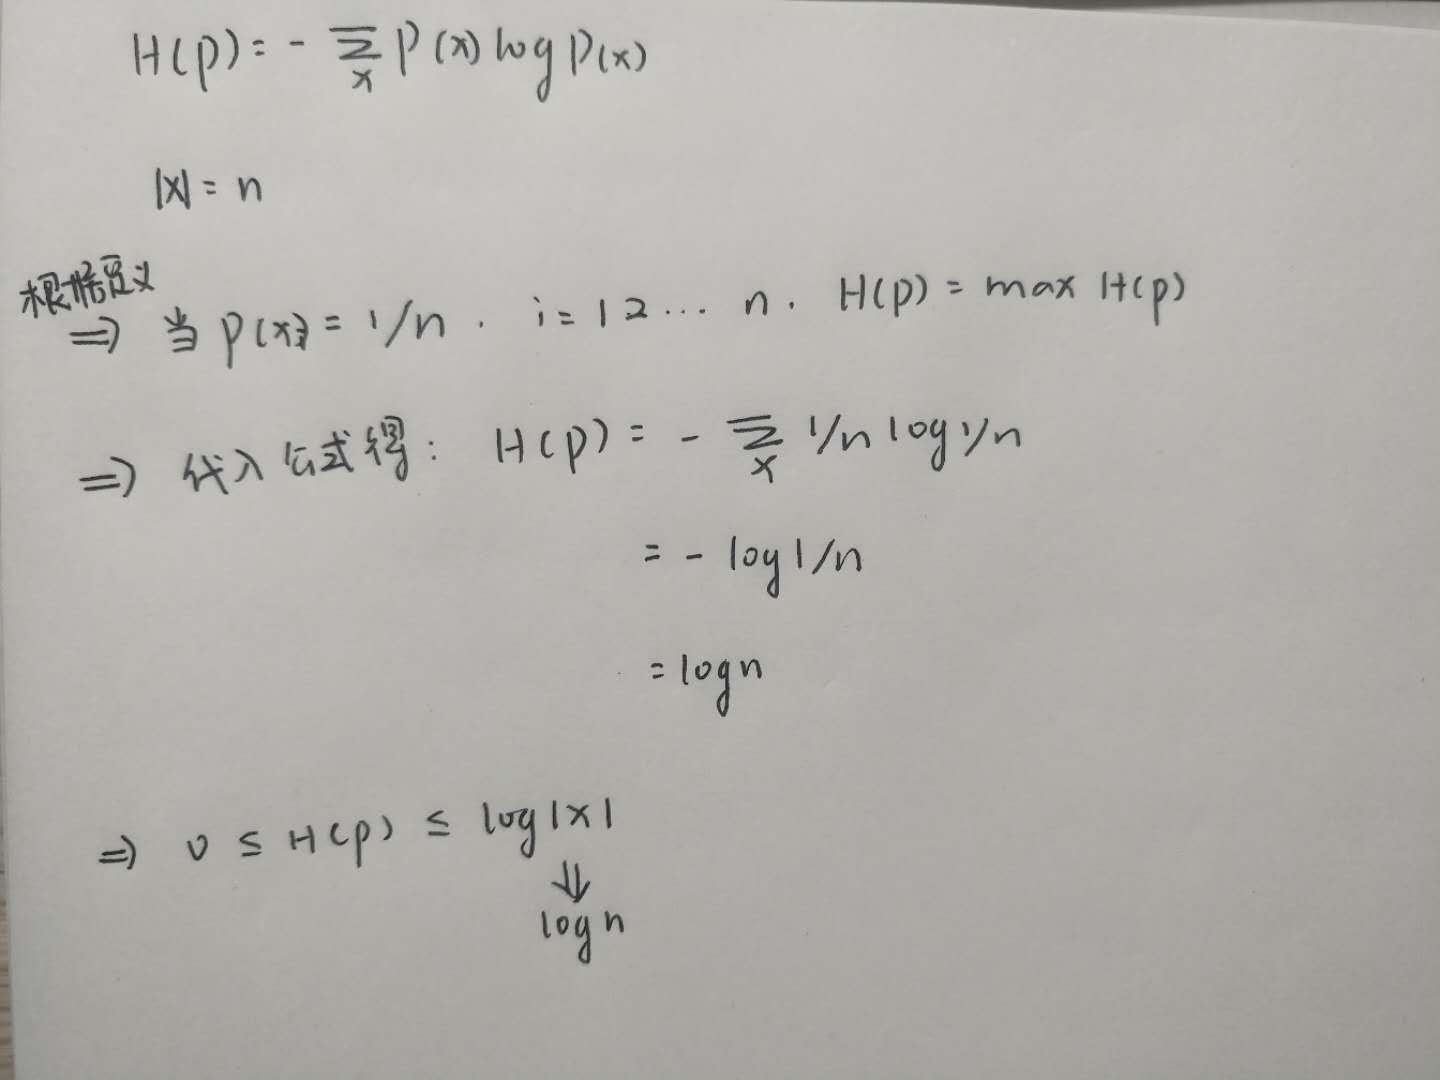 H(p) = - ∑ₓ P(x) log P(x)
|X| = n
根据定义
⇒ 当 P(xi) = 1/n . i = 1 2 ... n . H(p) = max H(p)
⇒ 代入公式得: H(p) = - ∑ₓ 1/n log 1/n
= - log 1/n
= log n
⇒ 0 ≤ H(p) ≤ log|X|
⇓
log n